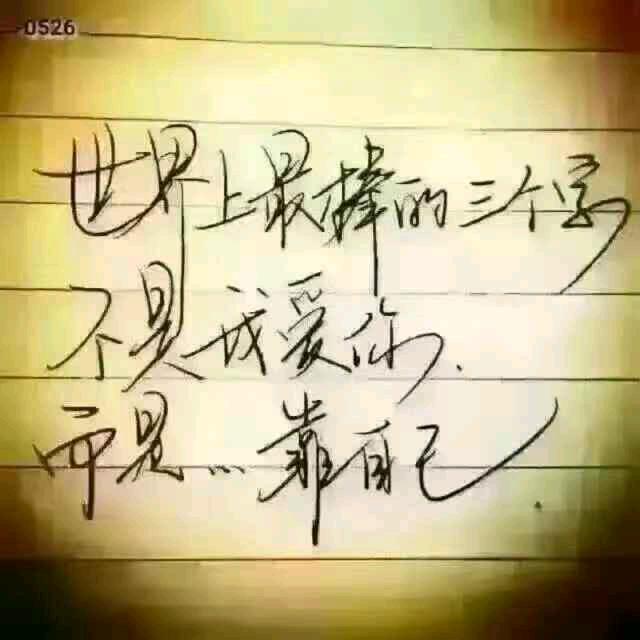 0526
世界上最棒的三个字
不是我爱你.
而是...靠自己.